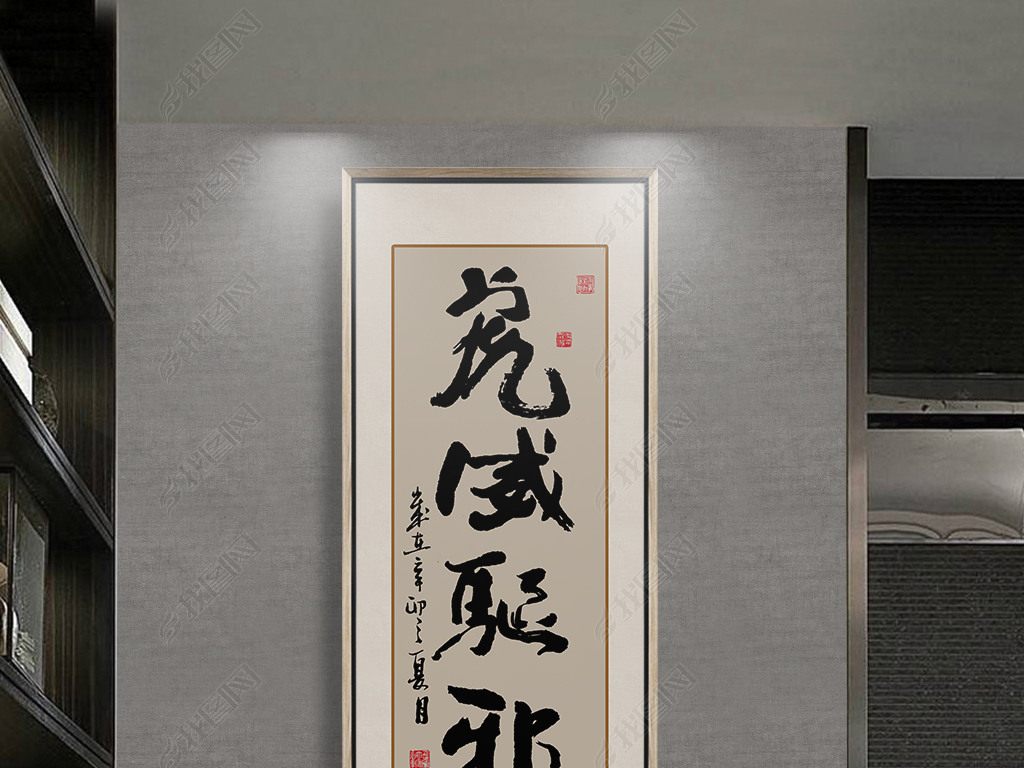 虎威驱邪
岁在辛卯之夏月
找图网